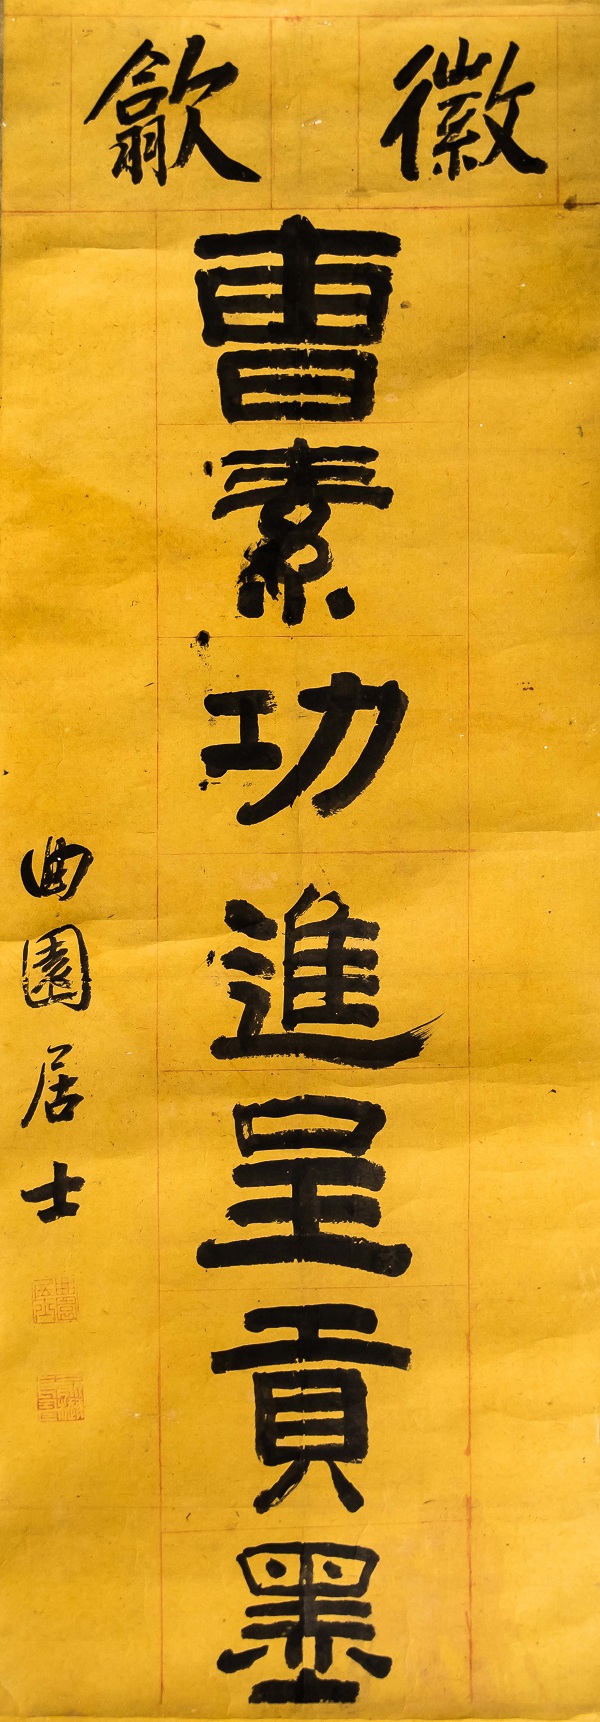 徽歙
曺素功進呈貢墨
曲園居士